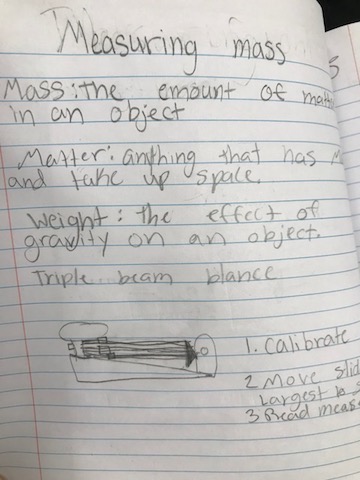 Measuring mass
Mass: the emount of
in an object
Matter: anything that has
and take up space.
Weight: the effect of
gravity on an object.
Triple beam blance
1. calibrate
2 Move
Largest
3 Read